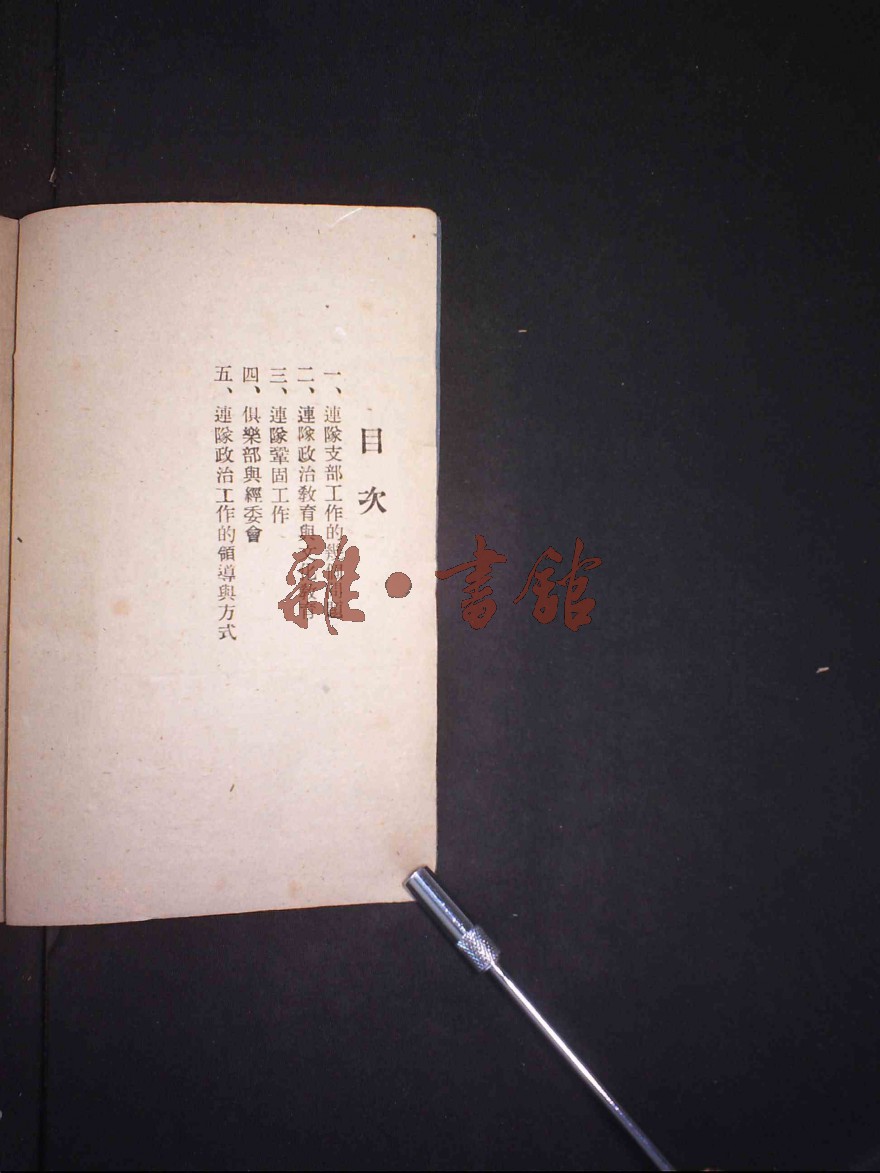 目次
一、連隊支部工作的幾個問題
二、連隊政治教育與文化教育
三、連隊鞏固工作
四、俱樂部與經委會
五、連隊政治工作的領導與方式
雜·書館